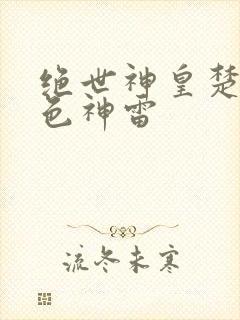 绝世神皇楚
色神雷
流冬未寒